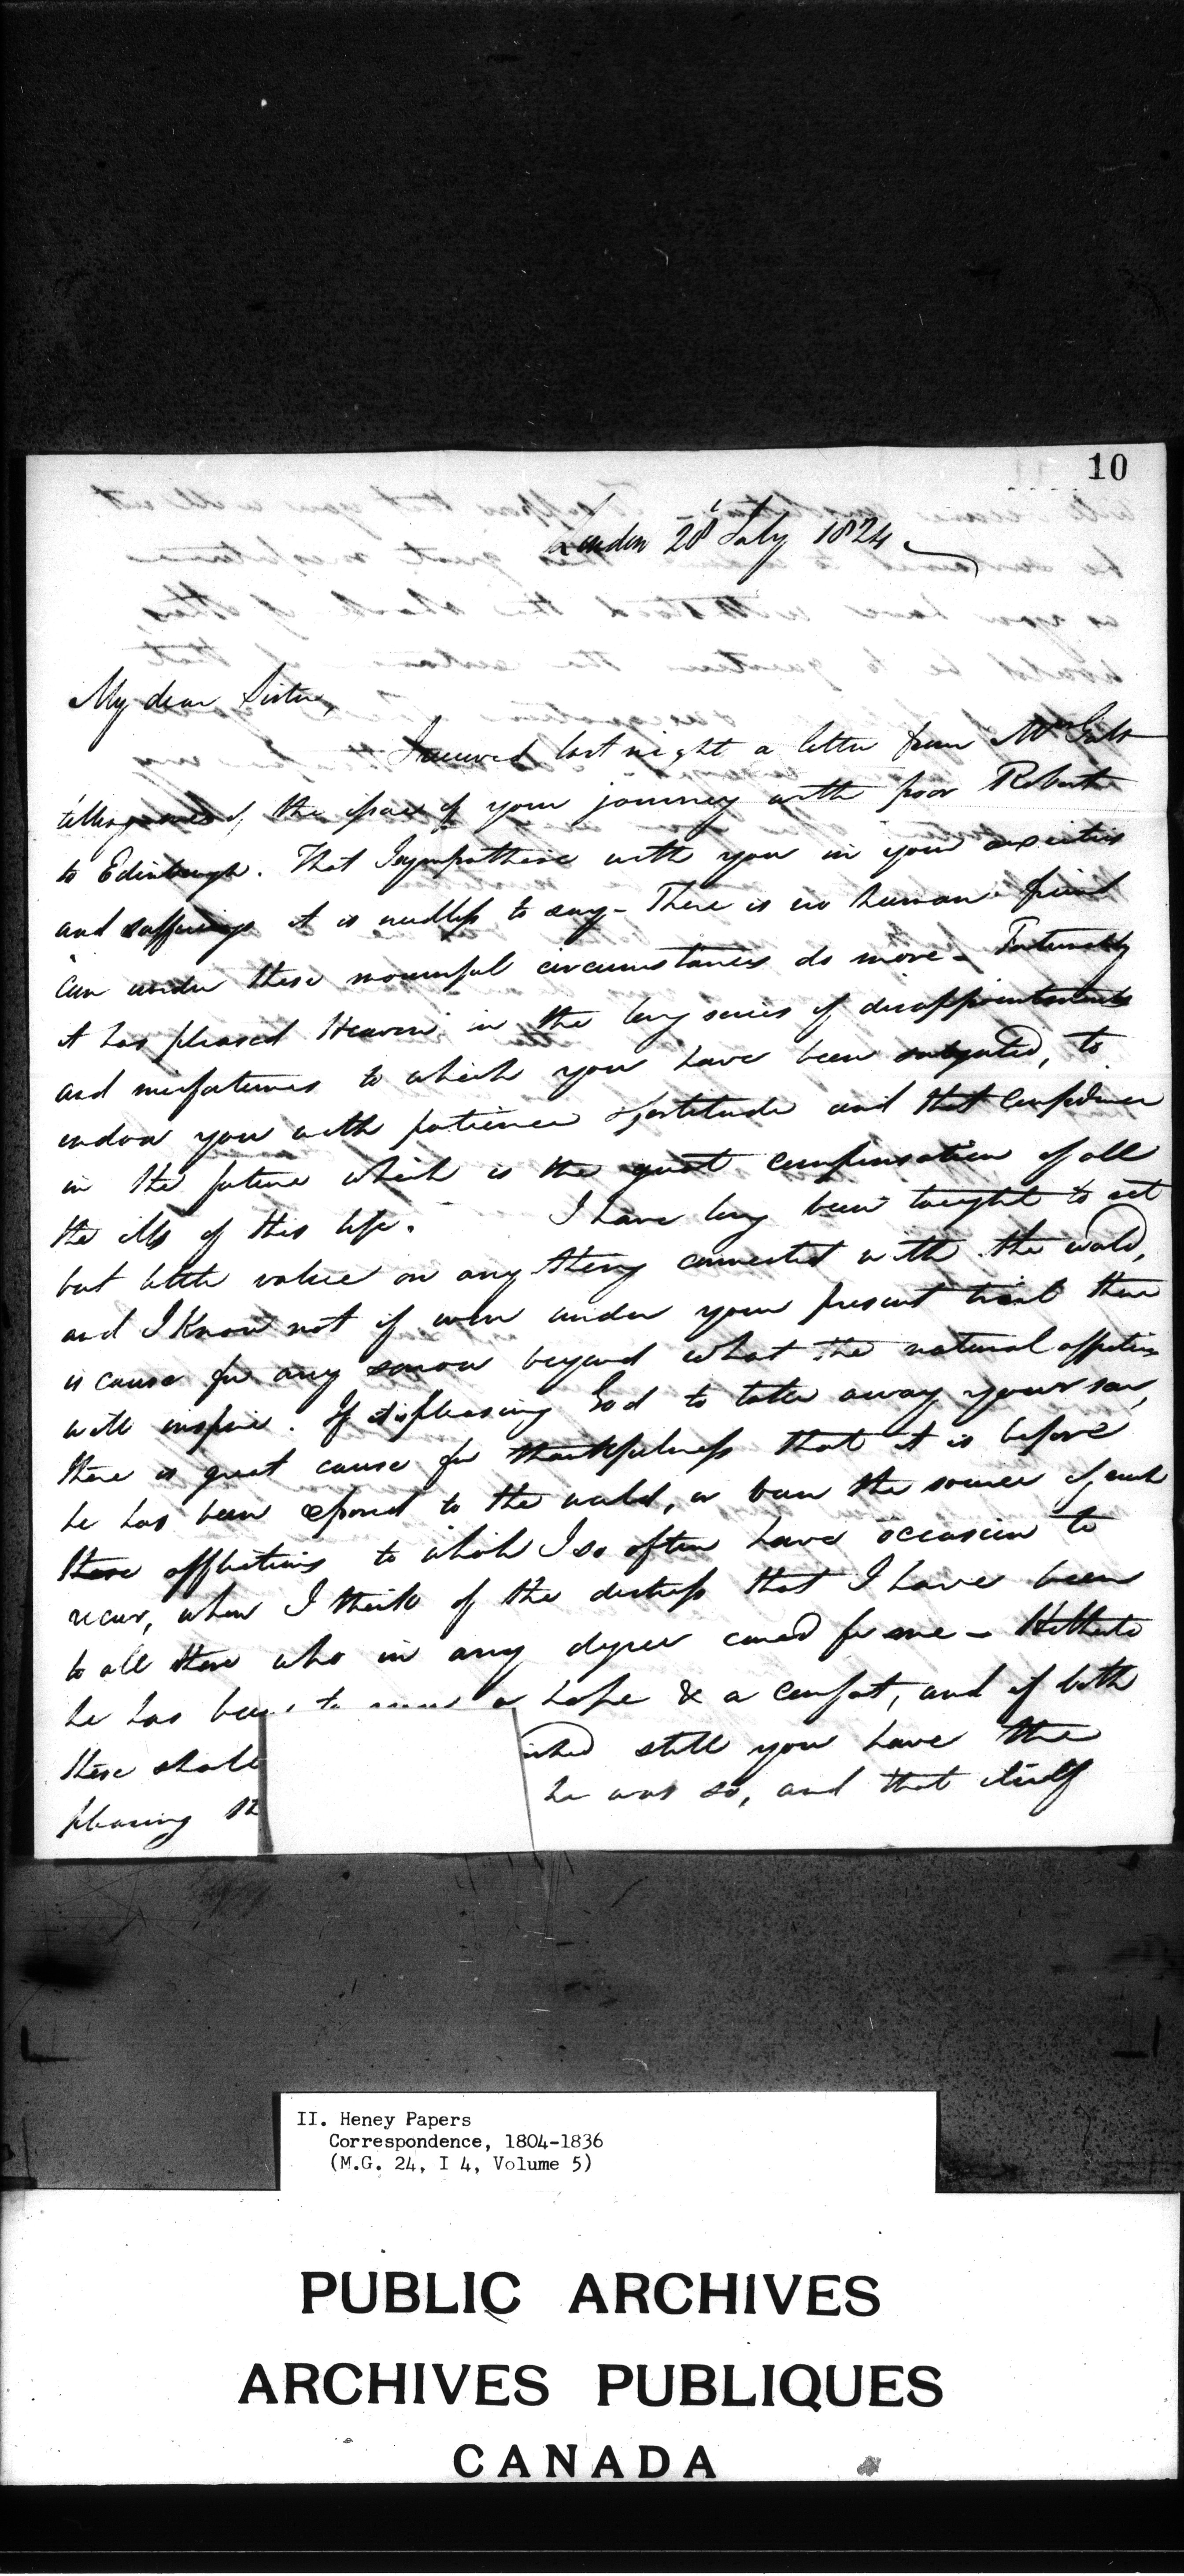 10
London 28 July 1824
My dear Sister,
I received last night a letter from Mrs Galt
telling me of the issue of your journey with poor Robert
to Edinburgh. That I sympathise with you in your anxieties
and sufferings it is needless to say - There is no human friend
can under these mournful circumstances do more - Fortunately
it has pleased Heaven in the long series of disappointments
and misfortunes to which you have been subjected, to
endow you with patience & fortitude and that confidence
in the future which is the great compensation of all
the ills of this life. I have long been taught to set
but little value on any thing connected with the world,
and I know not if even under your present trial there
is cause for any sorrow beyond what the natural affections
will inspire. If it is pleasing God to take away your son,
there is great cause for thankfulness that it is before
he has been exposed to the world, or been the source of such
those afflictions to which I so often have occasion to
recur, when I think of the distress that I have been
to all those who in any degree cared for me - Hitherto
he has been to a hope & a comfort, and if both
these shall still you have the
pleasing he was so, and that itself
II. Heney Papers
Correspondence, 1804-1836
(M.G. 24, I 4, Volume 5)
PUBLIC ARCHIVES
ARCHIVES PUBLIQUES
CANADA